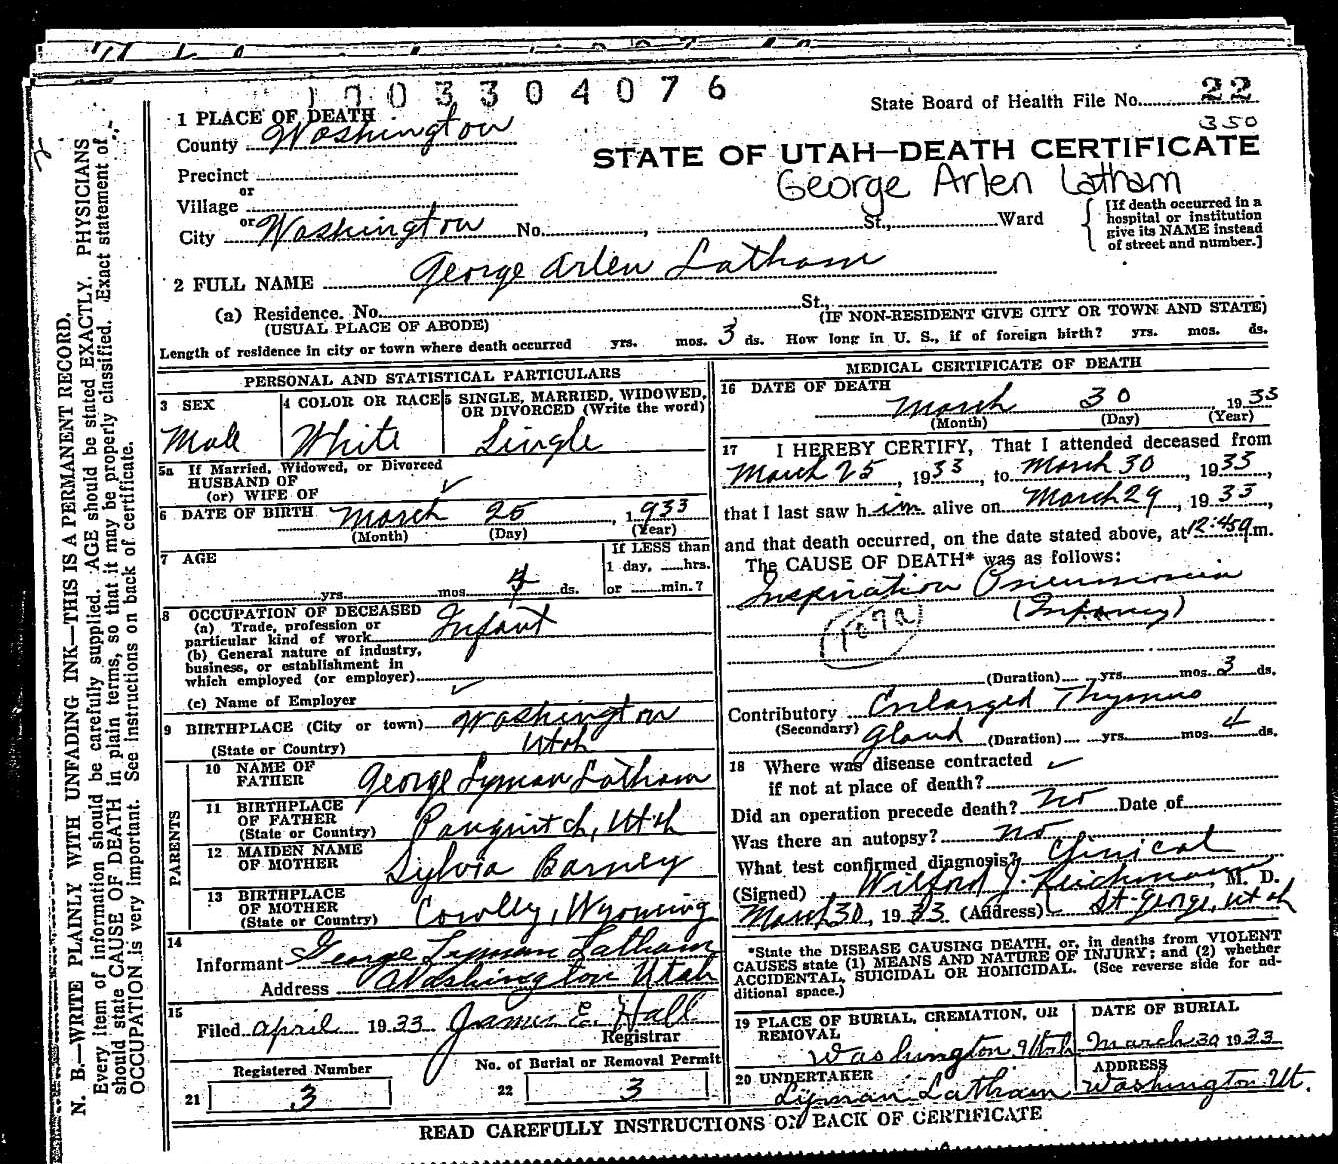 1003304076
State Board of Health File No. 22
350
STATE OF UTAH—DEATH CERTIFICATE
George Arlen Latham
1 PLACE OF DEATH
County Washington
Precinct
or
Village
or
City Washington No. , St., Ward
[If death occurred in a
hospital or institution
give its NAME instead
of street and number.]
2 FULL NAME George Arlen Latham
(a) Residence. No. St.,
(USUAL PLACE OF ABODE) (IF NON-RESIDENT GIVE CITY OR TOWN AND STATE)
Length of residence in city or town where death occurred yrs. mos. 3 ds. How long in U. S., if of foreign birth? yrs. mos. ds.
PERSONAL AND STATISTICAL PARTICULARS
3 SEX
Male
4 COLOR OR RACE
White
5 SINGLE, MARRIED, WIDOWED,
OR DIVORCED (Write the word)
Single
5a If Married, Widowed, or Divorced
HUSBAND OF
(or) WIFE OF
6 DATE OF BIRTH March 25, 1933
(Month) (Day) (Year)
7 AGE
yrs. mos. 4 ds.
If LESS than
1 day, hrs.
or min.?
8 OCCUPATION OF DECEASED
(a) Trade, profession or
particular kind of work Infant
(b) General nature of industry,
business, or establishment in
which employed (or employer)
(c) Name of Employer
9 BIRTHPLACE (City or town) Washington
(State or Country) Utah
PARENTS
10 NAME OF
FATHER George Lyman Latham
11 BIRTHPLACE
OF FATHER
(State or Country) Panguitch, Utah
12 MAIDEN NAME
OF MOTHER Sylvia Barney
13 BIRTHPLACE
OF MOTHER
(State or Country) Cowley, Wyoming
14
Informant George Lyman Latham
Address Washington Utah
15
Filed april 1933 James E. Hall
Registrar
Registered Number
21 3
No. of Burial or Removal Permit
22 3
MEDICAL CERTIFICATE OF DEATH
16 DATE OF DEATH
March 30, 1933
(Month) (Day) (Year)
17 I HEREBY CERTIFY, That I attended deceased from
March 25, 1933, to March 30, 1933,
that I last saw him alive on March 29, 1933,
and that death occurred, on the date stated above, at 12:45 a.m.
The CAUSE OF DEATH* was as follows:
Inspiration Pneumonia
(Infancy)
107a
(Duration) yrs. mos. 3 ds.
Contributory Enlarged Thymus
(Secondary) gland (Duration) yrs. mos. 4 ds.
18 Where was disease contracted
if not at place of death?
Did an operation precede death? No Date of
Was there an autopsy? no
What test confirmed diagnosis? Clinical
(Signed) Wilford J. Reichmann, M. D.
March 30, 1933 (Address) St. George, Utah
*State the DISEASE CAUSING DEATH, or, in deaths from VIOLENT
CAUSES state (1) MEANS AND NATURE OF INJURY; and (2) whether
ACCIDENTAL, SUICIDAL OR HOMICIDAL. (See reverse side for ad-
ditional space.)
19 PLACE OF BURIAL, CREMATION, OR
REMOVAL
Washington, Utah
DATE OF BURIAL
March 30 1933
20 UNDERTAKER
Lyman Latham
ADDRESS
Washington Ut.
READ CAREFULLY INSTRUCTIONS ON BACK OF CERTIFICATE
N. B.—WRITE PLAINLY WITH UNFADING INK—THIS IS A PERMANENT RECORD.
Every item of information should be carefully supplied. AGE should be stated EXACTLY. PHYSICIANS
should state CAUSE OF DEATH in plain terms, so that it may be properly classified. Exact statement of
OCCUPATION is very important. See instructions on back of certificate.